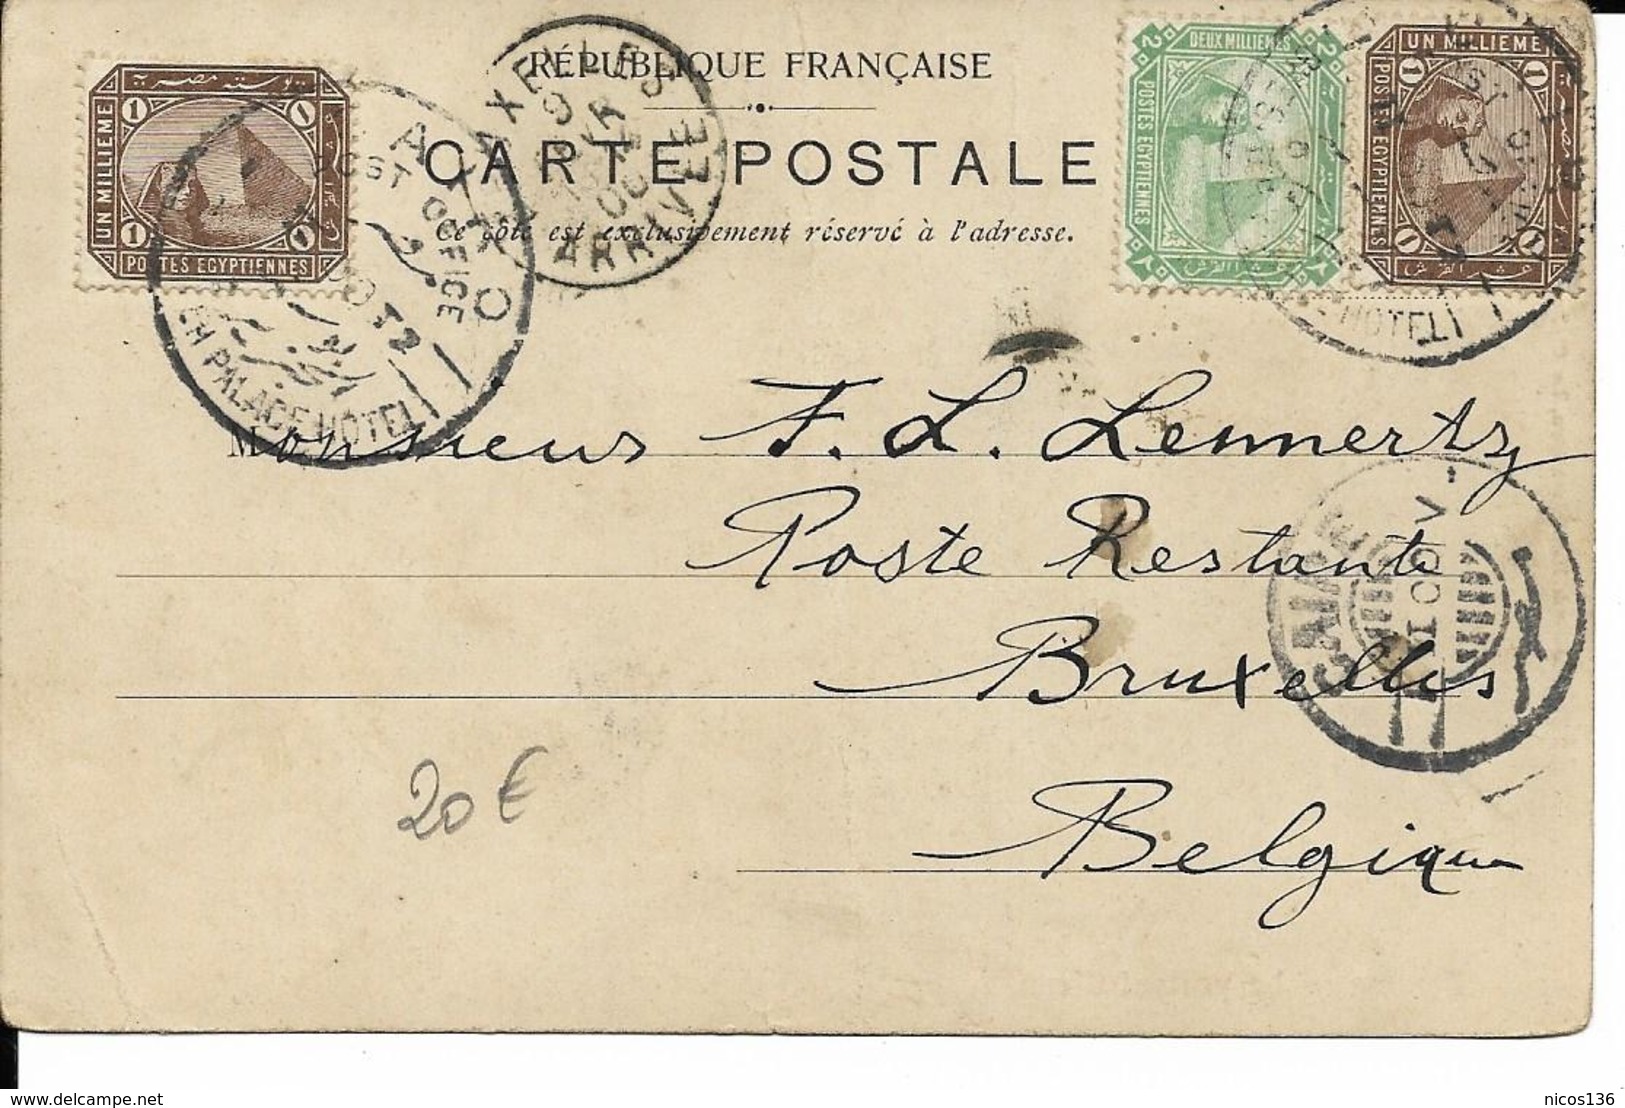 RÉPUBLIQUE FRANÇAISE
CARTE POSTALE
Ce côté est exclusivement réservé à l'adresse.
UN MILLIEME
1 1
1 1
POSTES EGYPTIENNES
بوستة مصرية
DEUX MILLIEMES
2 2
POSTES EGYPTIENNES
UN MILLIEME
1 1
1 1
POSTES EGYPTIENNES
عشر القرش
POST OFFICE
PALACE HOTEL
ARRIVÉE
HOTEL
Monsieur F. L. Lennertz
Poste Restante
Bruxelles
Belgique
CAIRE
20 €
delcampe.net
nicos136